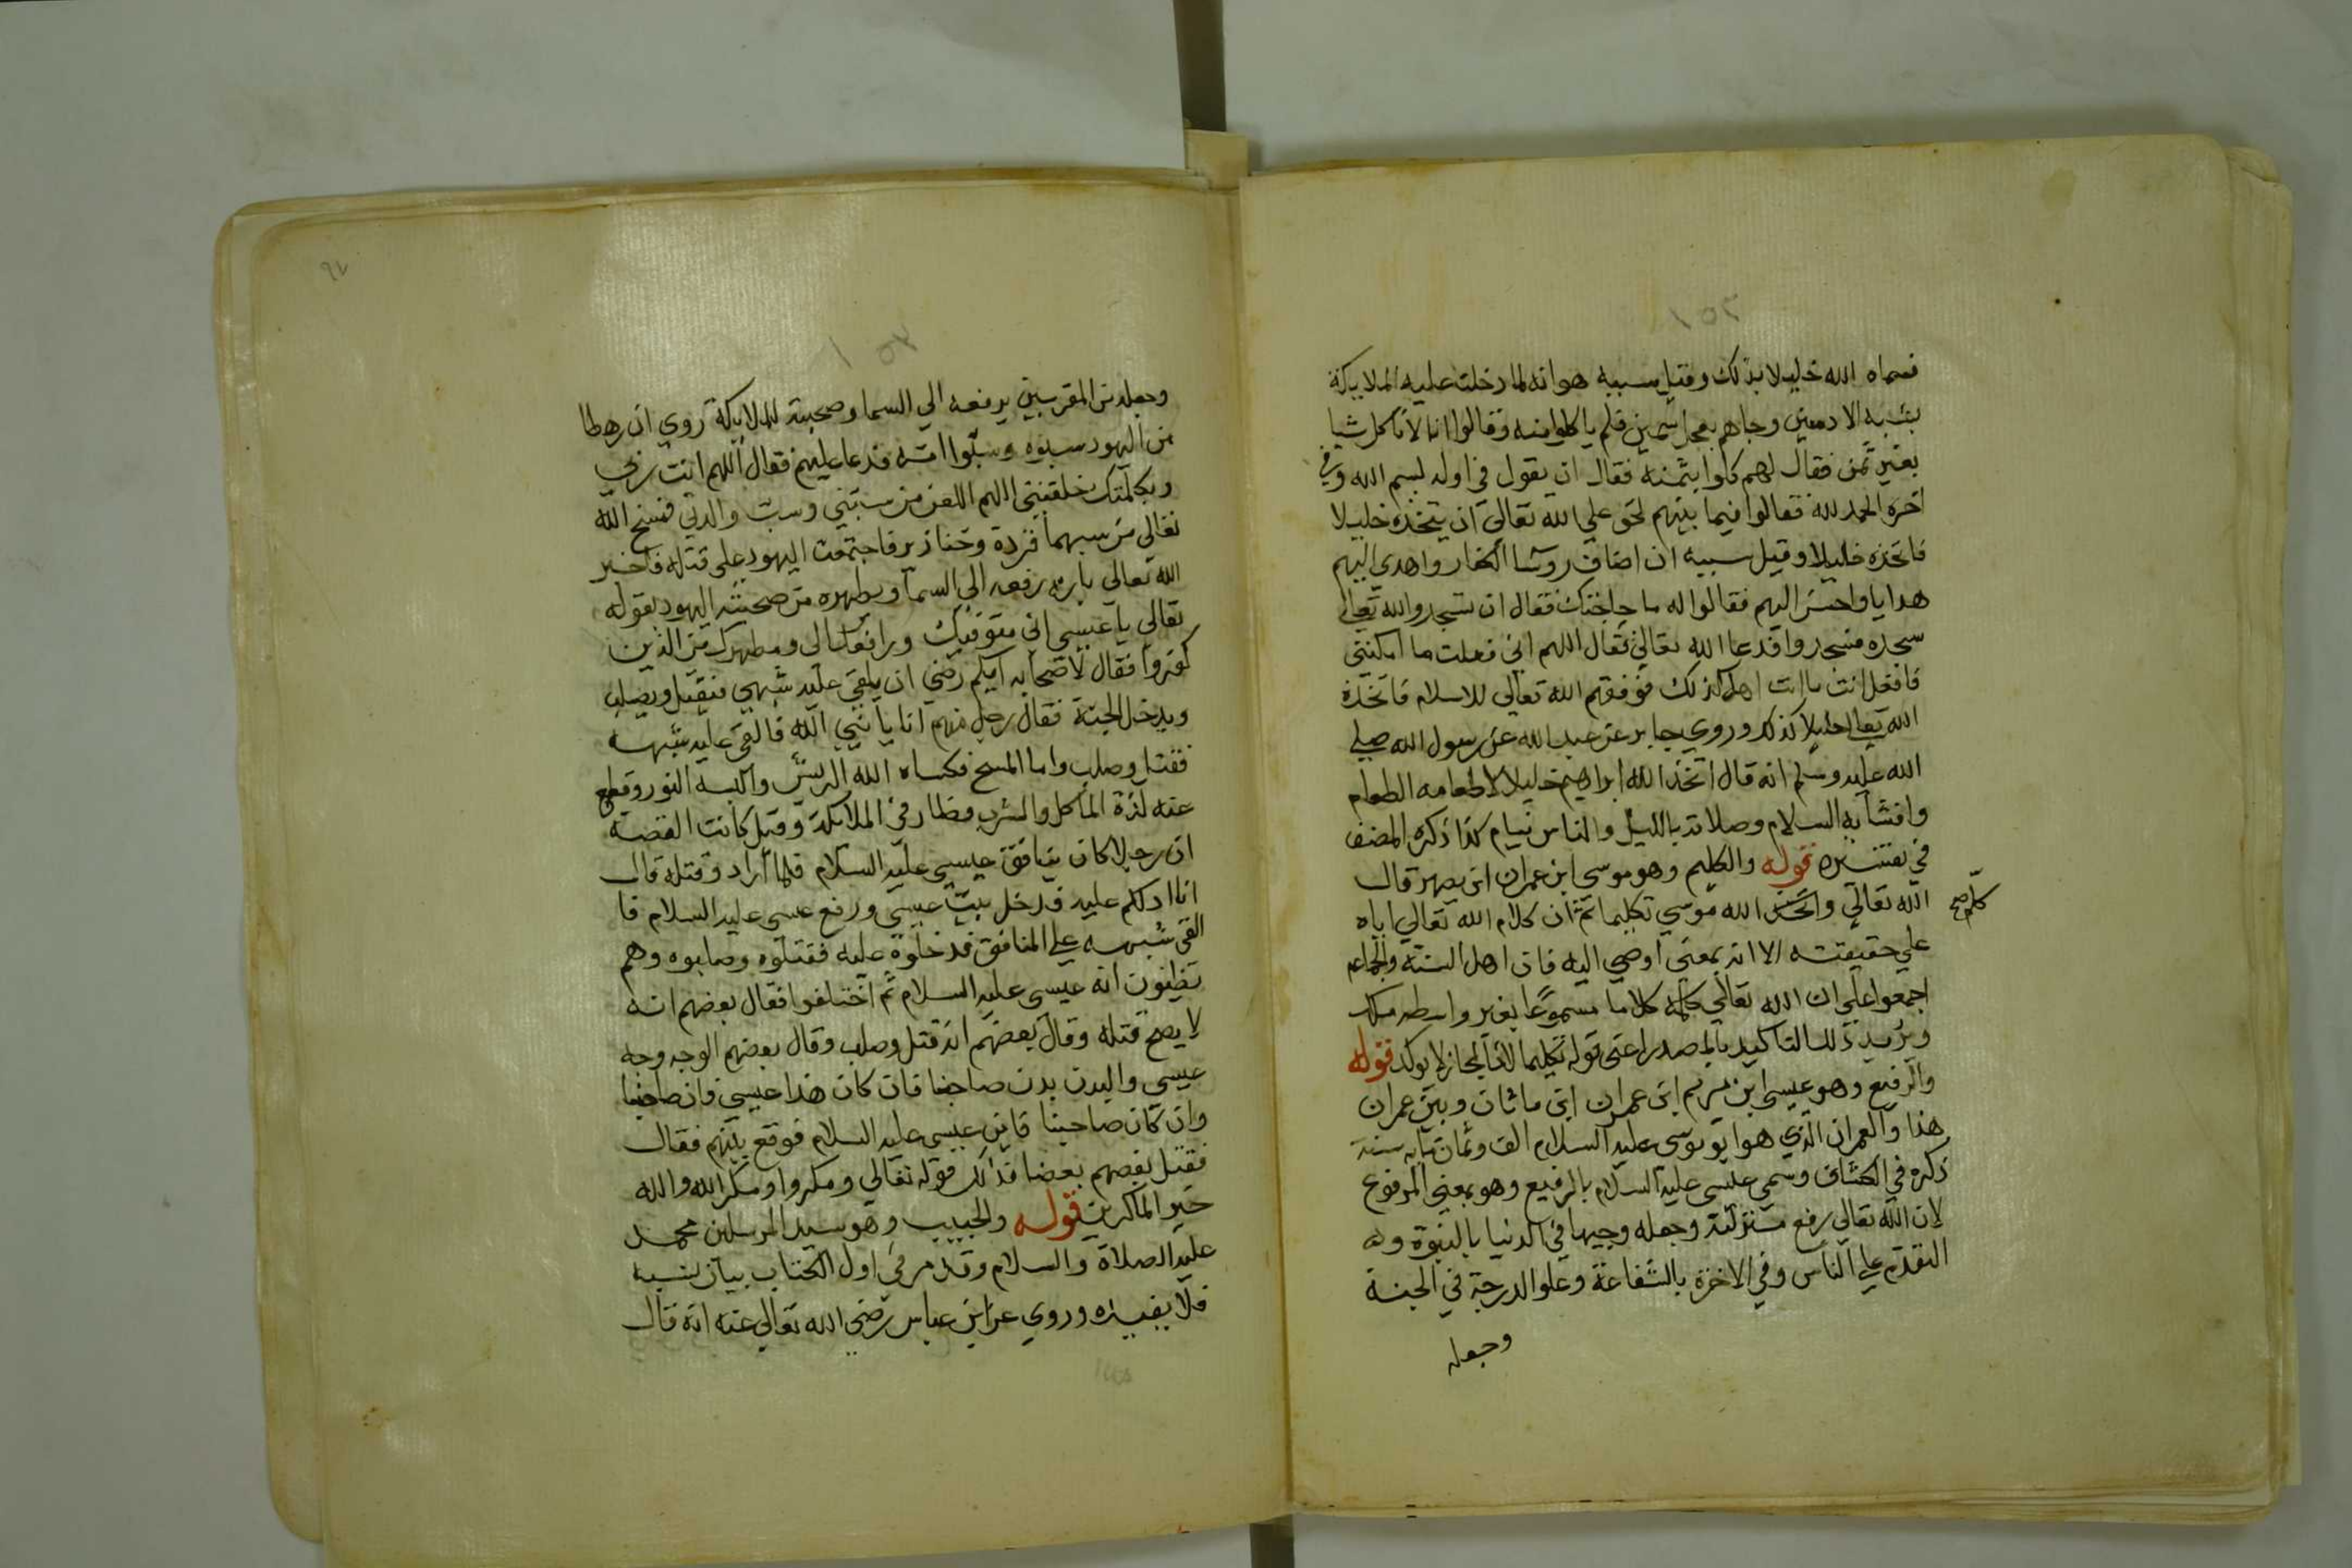 ١٥٢
فسماه الله خليلا بذلك وقيل سببه هو انه لما دخلت عليه الملايكة
بشبه الادميين وجاهم بعجل سمين فلم ياكلوا منه وقالوا انا لا ناكل شيا
بغير ثمن فقال لهم كلوا بثمنه فقال ان يقول في اوله بسم الله وفي
اخره الحمد لله فقالوا فيما بينهم لحق علي الله تعالي ان يتخذه خليلا
فاتخذه خليلا وقيل سببه ان اضاف روسا الكفار واهدي اليهم
هدايا واحسن اليهم فقالوا له ما حاجتك فقال ان تسجدوا لله تعالي
سجده فسجدوا فدعا الله تعالي فقال اللهم اني فعلت ما امكنني
فافعل انت ما انت اهل لذلك فوفقهم الله تعالي للاسلام فاتخذه
الله تعالي خليلا كذلك وروي جابر عن عبد الله عن رسول الله صلي
الله عليه وسلم انه قال اتخذ الله ابراهيم خليلا لاطعامه الطعام
وافشايه السلام وصلاته بالليل والناس نيام كذا ذكره المصنف
في تفسيره قوله والكليم وهو موسي ابن عمران ابن يصهر قال
الله تعالي الله موسي تكليما ثم ان كلام الله تعالي اياه
كلم صح
علي حقيقته لا انه بمعني اوحي اليه فان اهل السنة والجماعه
اجمعوا علي ان الله تعالي كلمه كلاما مسموعا بغير واسطه ملك
ذلك التاكيد بالمصدر اعني قوله تكليما لان المجاز لا يوكد قوله
والرفيع وهو عيسي ابن مريم ابن عمران ابن ماثان وبين عمران
هذا والعمران الذي هو ابو موسي عليه السلام الف وثمان مايه سنة
ذكره في الكشاف وسمي عيسي عليه السلام بالرفيع وهو بمعني المرفوع
لان الله تعالي رفع منزلته وجعله وجيها في الدنيا بالنبوة وله
التقدم علي الناس وفي الاخرة بالشفاعة وعلو الدرجة في الجنة
وجعله
٩٢
١٥٣
وجعله من المقربين برفعه الي السما وصحبته للملايكة روي ان رهطا
من اليهود سبوه وسبوا امه فدعا عليهم فقال اللهم انت ربي
وبكلمتك خلقتني اللهم العن من سبني وسب والدتي فمسخ الله
تعالي من سبهما قردة وخنازير فاجتمعت اليهود علي قتله فاخبر
الله تعالي بانه رفعه الي السما ويطهره من صحبة اليهود بقوله
تعالي يا عيسي اني متوفيك ورافعك الي ومطهرك من الذين
كفروا فقال لاصحابه ايكم رضي ان يلقي عليه شبهي فيقتل ويصلب
ويدخل الجنة فقال رجل منهم انا يا نبي الله فالقي عليه شبهه
فقتل وصلب واما المسيح فكساه الله الريش والبسه النور وقطع
عنه لذة الماكل والمشرب فطار في الملايكة وقيل كانت القصة
ان رجلا كان ينافق عيسي عليه السلام فلما ارادو قتله قال
انا ادلكم عليه فدخل بيت عيسي ورفع عيسي عليه السلام فا
القي شبهه علي المنافق فدخلوه عليه فقتلوه وصلبوه وهم
يظنون انه عيسي عليه السلام ثم اختلفوا فقال بعضهم انه
لا يصح قتله وقال بعضهم انه قتل وصلب وقال بعضهم الوجه وجه
عيسي والبدن بدن صاحبنا فان كان هذا عيسي فاين صاحبنا
وان كان صاحبنا فاين عيسي عليه السلام فوقع بينهم فقال
فقتل بعضهم بعضا فذلك قوله تعالي ومكروا ومكر الله والله
خير الماكرين قوله والحبيب وهو سيد المرسلين محمد
عليه الصلاة والسلام وقد مر في اول الكتاب بيان نسبه
فلا يفيده وروي عن ابن عباس رضي الله تعالي عنه انه قال